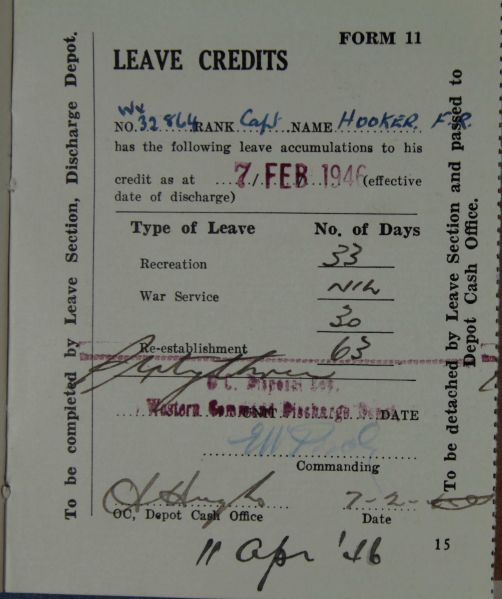 FORM 11
LEAVE CREDITS
Wx
NO. 32864 RANK Capt NAME HOOKER. F.R.
has the following leave accumulations to his
credit as at 7 FEB 1946 (effective
date of discharge)
Type of Leave No. of Days
Recreation 33
War Service NIL
30
Re-establishment 63
Sixty three
Western Command Discharge Depot
UNIT DATE
Commanding
7-2-
OC, Depot Cash Office Date
11 Apr '46
15
To be completed by Leave Section, Discharge Depot.
To be detached by Leave Section and passed to
Depot Cash Office.